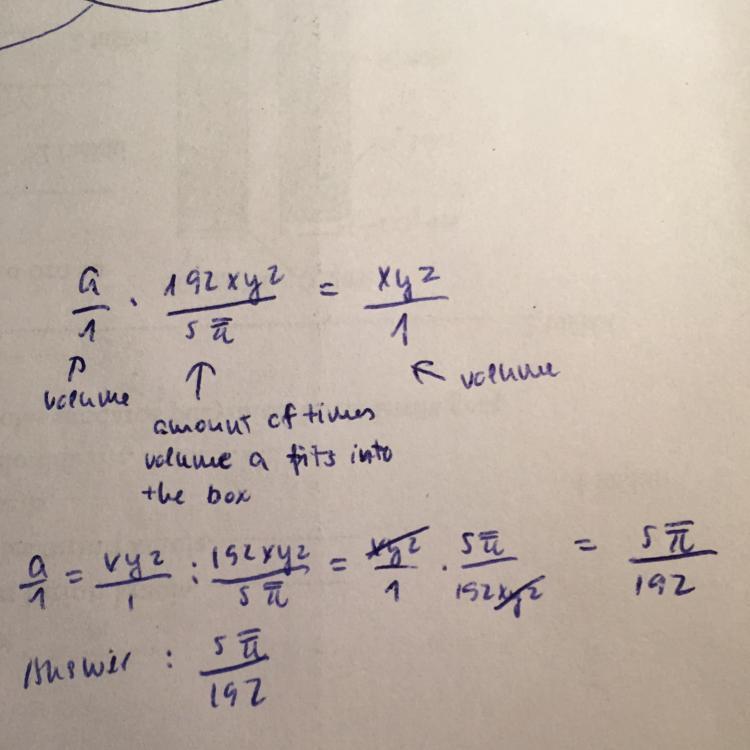 a/1 · 192xyz/5π = xyz/1
volume
volume
amount of times
volume a fits into
the box
a/1 = xyz/1 : 192xyz/5π = xyz/1 · 5π/192xyz = 5π/192
Answer : 5π/192